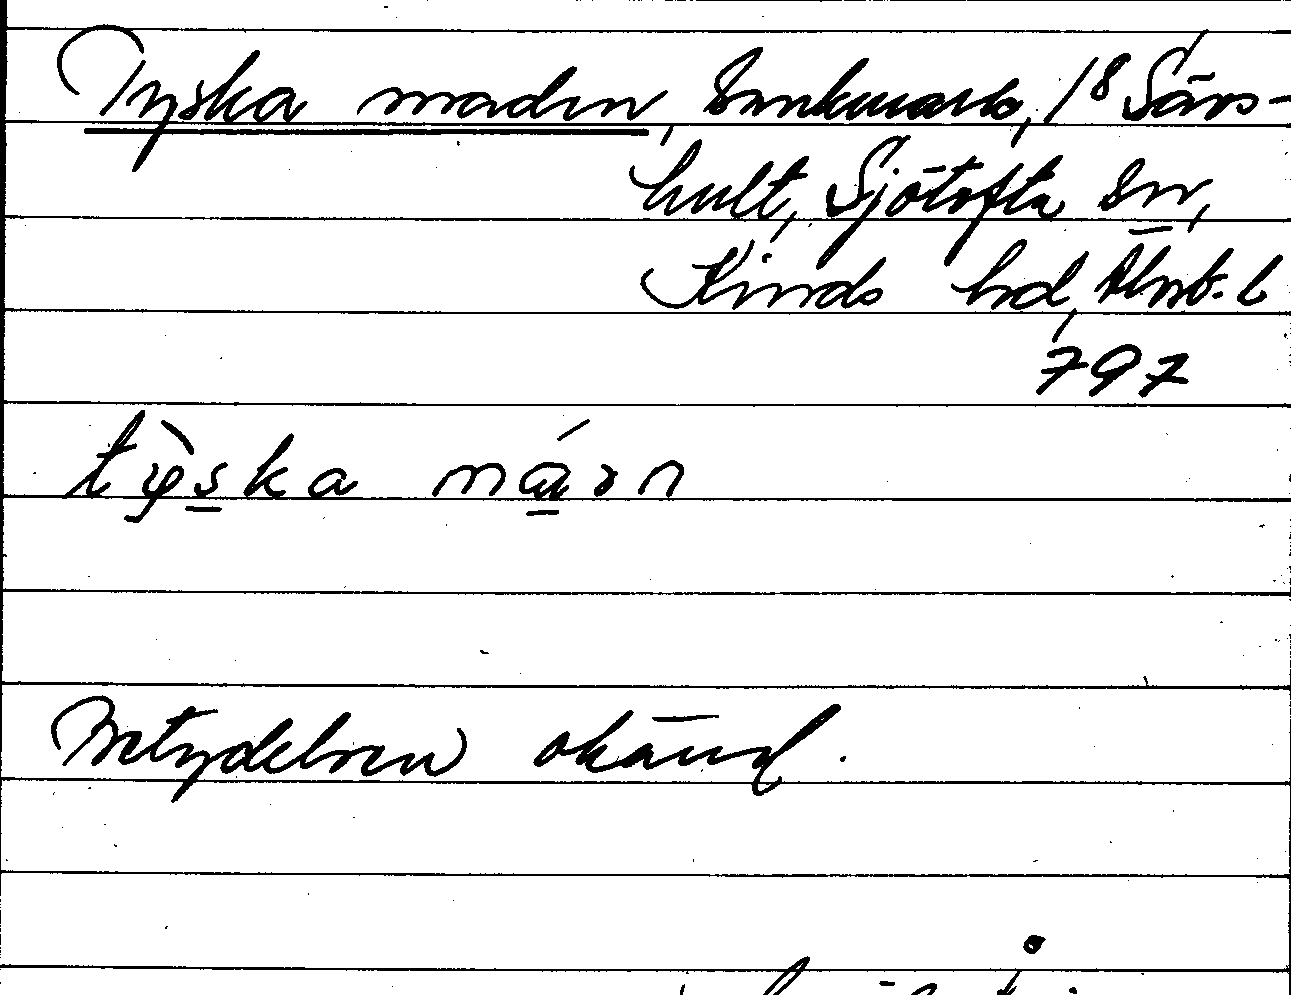 Tyska maden, Sankmark, /8 Särs-
hult, Sjötofta sn,
Kinds hd, Älvsb. l
797
tỳska má̱ɹn
Betydelsen okänd.